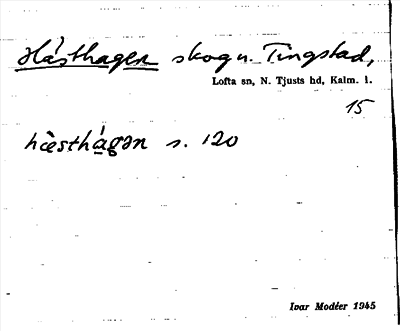 Hásthagen skog u. Tingstad,
Lofta sn, N. Tjusts hd, Kalm. l.
15
hæ̀sthá̱gən s. 120
Ivar Modéer 1945